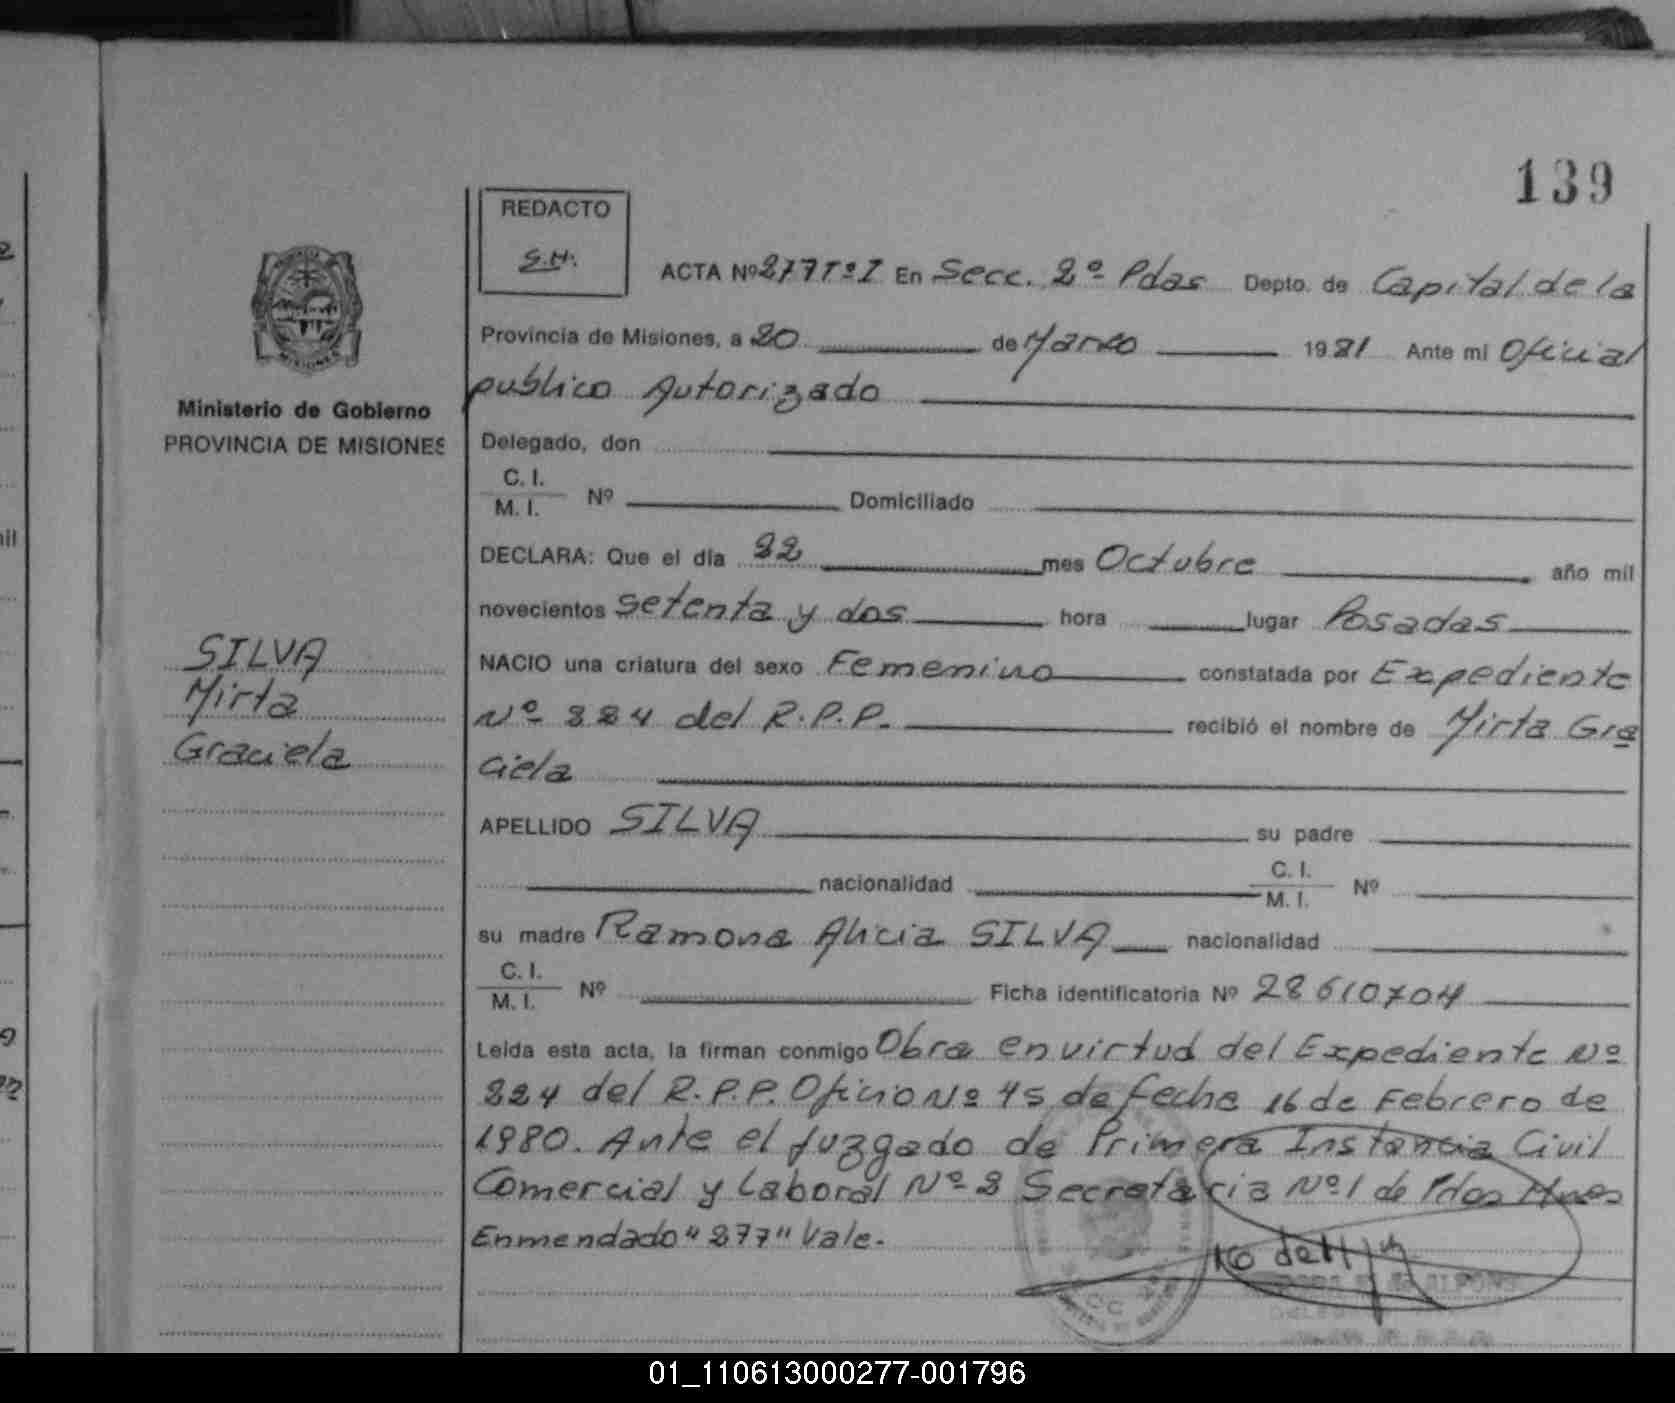 139
REDACTO
S.H.
ACTA Nº 277 Tº I En Secc. 2º Pdas Depto. de Capital de la
Provincia de Misiones, a 20 de Marzo 1981 Ante mi Oficial
publico Autorizado
Ministerio de Gobierno
PROVINCIA DE MISIONES
Delegado, don
C. I.
M. I. Nº Domiciliado
DECLARA: Que el día 22 mes Octubre año mil
novecientos setenta y dos hora lugar Posadas
SILVA
Mirta
Graciela
NACIO una criatura del sexo Femenino constatada por Expediente
Nº 224 del R.P.P. recibió el nombre de Mirta Gra
ciela
APELLIDO SILVA su padre
nacionalidad C. I. M. I. Nº
su madre Ramona Alicia SILVA nacionalidad
C. I.
M. I. Nº Ficha identificatoria Nº 28610704
Leída esta acta, la firman conmigo Obra en virtud del Expediente Nº
224 del R.P.P. Oficio Nº 45 de fecha 16 de Febrero de
1980. Ante el Juzgado de Primera Instancia Civil
Comercial y Laboral Nº 2 Secretaria Nº 1 de Pdas Mnes
Enmendado "277" Vale.
01_110613000277-001796